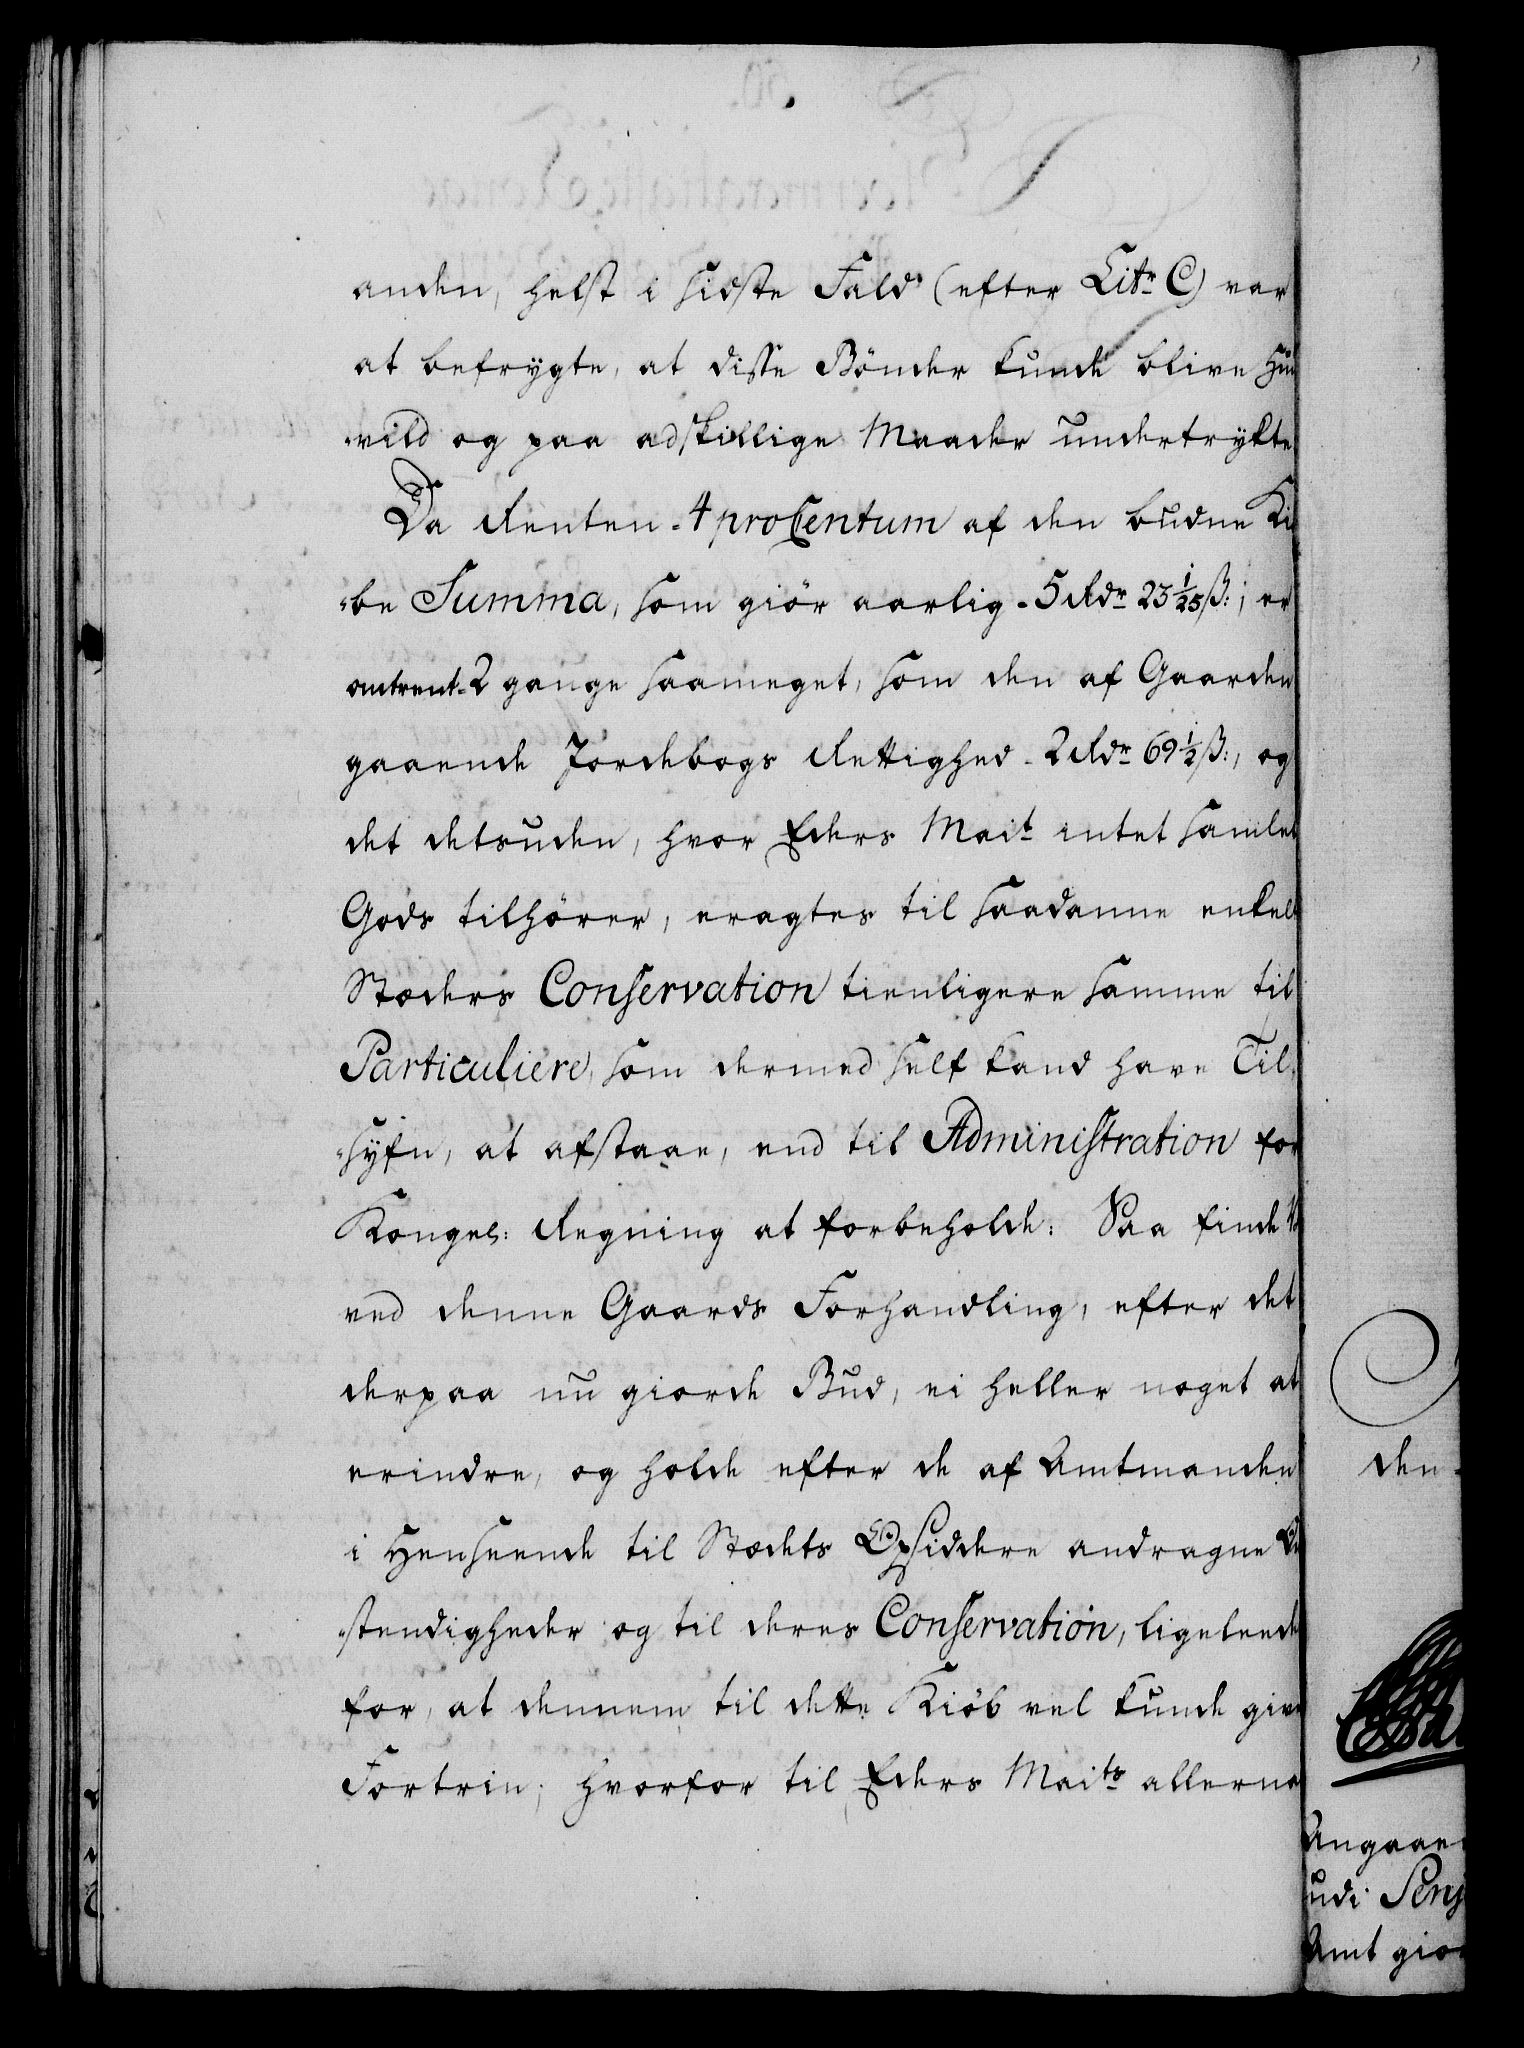 anden, helst i sidste Fald (efter Litr C) var
at befrygte, at disse Bönder kunde blive
vild og paa adskillige Maader undertrykte
Da Renten 4 proCentum af den budne Ki
be Summa, som giör aarlig 5 Rdr 23 1/25 ß:; er
omtrent 2 gange saameget, som den af Gaarden
gaaende Jordebogs Rettighed 2 Rdr 69 1/2 ß:, og
det desuden, hvor Eders Mait intet samlet
Gods tilhörer, eragtes til saadanne enkel
Stæders Conservation tienligere samme til
Particuliere, som dermed self kand have Til„
„syfn, at afstaae, end til Administration for
Kongel: Regning at forbeholde: Saa finde
ved denne Gaards Forhandling, efter det
derpaa nu giorde Bud, ei heller noget at
erindre, og holde efter de af Amtmanden
i Henseende til Stædets Opsiddere andragne
„stendigheder og til deres Conservation, ligeleede
for, at dennem til dette Kiöb vel kunde give
Fortrin; hvorfor til Eders Maits allerna
den
Angaae
udi Senj
Amt gior